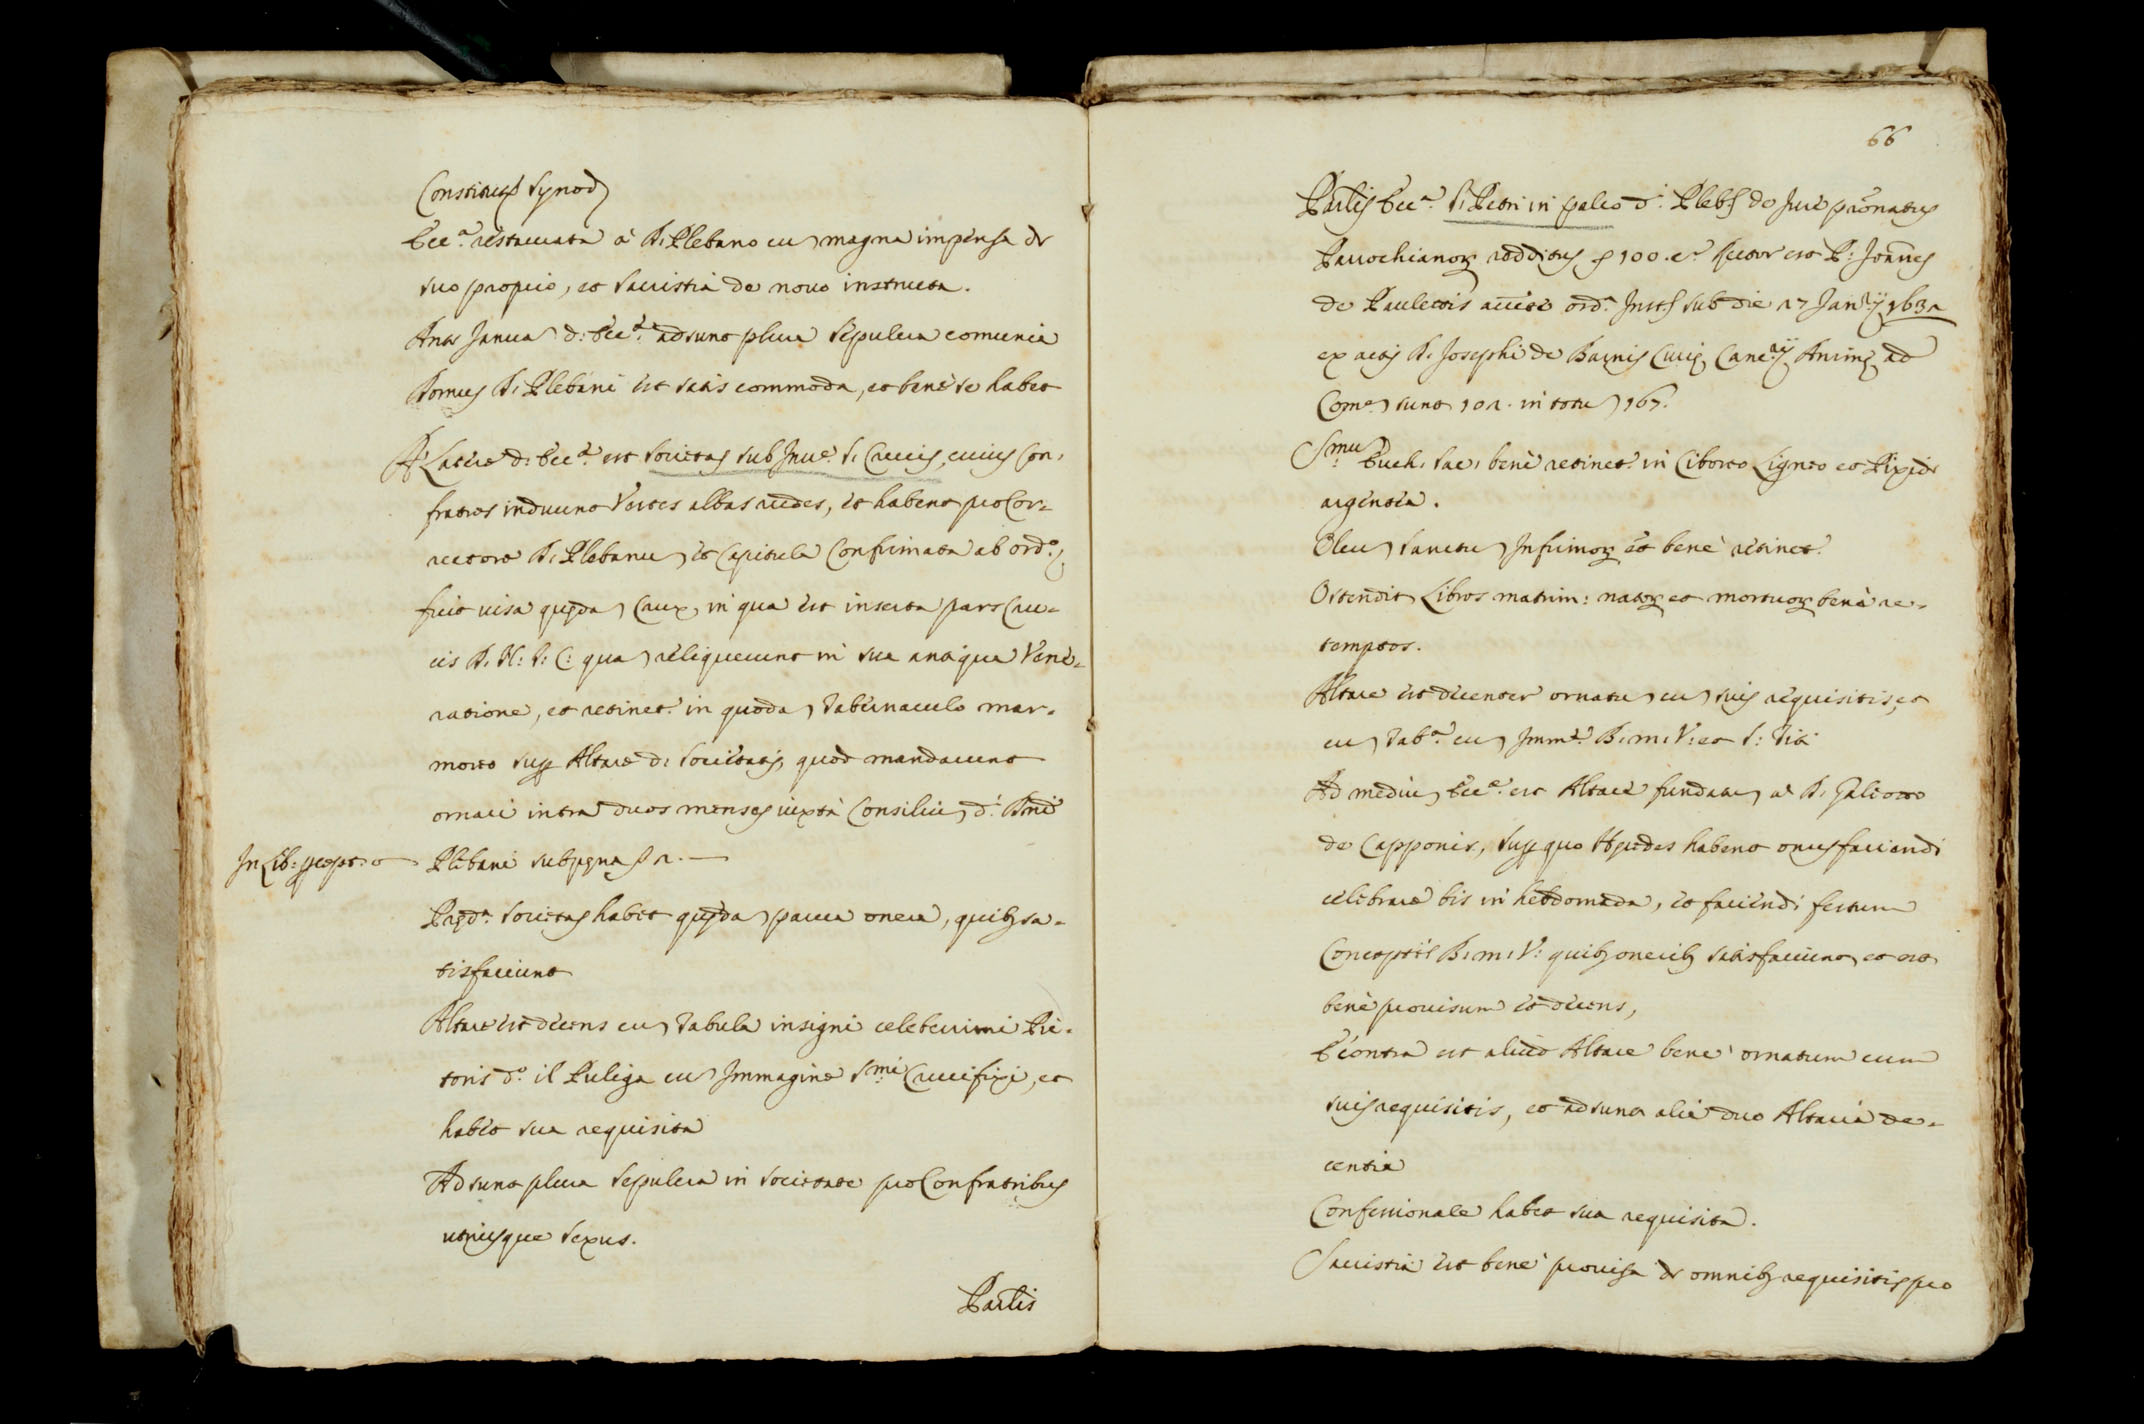 Constitut. Synod.
Ecc.ª restaurata à D. Plebano cu magna impensa de
suo proprio, et Sacristia de novo instructa.
Ante Janua d: Ecc.ª adsunt plura Sepulcra comunia
Domus D. Plebani est satis commoda, et benè se habet
A Latere d: Ecc.ª est Societas sub Inve. S. Crucis, cuius Con=
fratres induunt Vestes albas rudes, et habent pro Cor=
rectore D. Plebanu, et Capitula Confirmata ab ord.º,
fuit visa quæda Crux, in qua est inserta pars Cru=
cis D. N: J: C: qua reliquerunt in sua antiqua Vene=
ratione, et retinet. in quoda Tabernaculo mar=
moreo supr Altare d: Societatis, quod mandarunt
ornari intra duos menses iuxta Consiliu d: Dni
In Lib: precept. Plebani sub pena ƒ 2.
Præd.ª Societas habet quæda pauca onera, quib; sa=
tisfaciunt
Altare est decens cu Tabula insigni celeberrimi Pic=
toris d.º il Puligo cu Immagine S.mi Crucifixi, et
habet sua requisita
Adsunt plura Sepulcra in Societate pro Confratribus
utriusque sexus.
Par.lis
66
Par.lis Ecc.ª S. Petri in Palco d: Plebs de Jure pronatus
Parochianor. redditus ƒ 100. c.ª Rector est P: Joannes
de Paulettis access. ord.ª Inst. sub die 27 Jan.rij 1632
ex actis D. Josephi de Barnis Curiæ Canc.rij Animæ ad
Com.e sunt 102. in totu 167.
S.mu Euch. Sac. benè retinet. in Ciborio Ligneo et Pixide
argentea.
Oleu Sanctu Infirmor. et benè retinet.
Ostendit Libros matrim: nator. et mortuor. benè re=
temptos.
Altare est decenter ornatu cu suis requisitis, et
cu Tab.ª cu Imm.e B. M. V: et S:
Ad mediu Ecc.ª est Altare fundatu à D. Galeotto
de Capponis, supr quo Hæredes habent onus faciendi
celebrare bis in hebdomada, et faciendi festum
Conceptis B. M. V: quib; onerib; satisfaciunt, et est
benè provisum et decens,
E contra est aliud Altare benè ornatum cum
suis requisitis, et adsunt alia duo Altaria de=
centia
Confessionale habet sua requisita.
Sacristia est benè provisa de omnib; requisitis pro